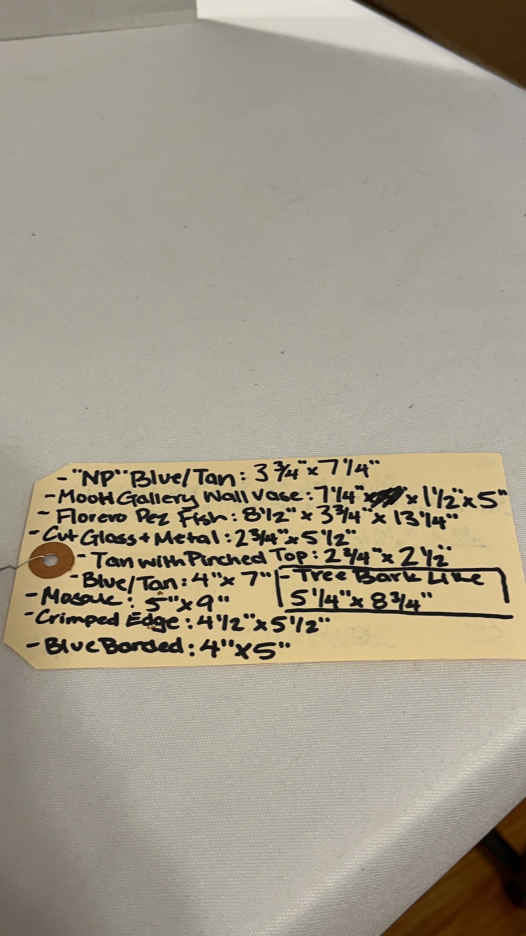 - "NP" Blue/Tan: 3 3/4" x 7 1/4"
- Moott Gallery Wall Vase: 7 1/4" x 1 1/2" x 5"
- Florero Pez Fish: 8 1/2" x 3 3/4" x 13 1/4"
- Cut Glass + Metal: 2 3/4" x 5 1/2"
- Tan with Pinched Top: 2 3/4" x 2 1/2"
- Blue/Tan: 4" x 7"
- Tree Bark Like
5 1/4" x 8 3/4"
- Mosaic: 5" x 9"
- Crimped Edge: 4 1/2" x 5 1/2"
- Blue Banded: 4" x 5"